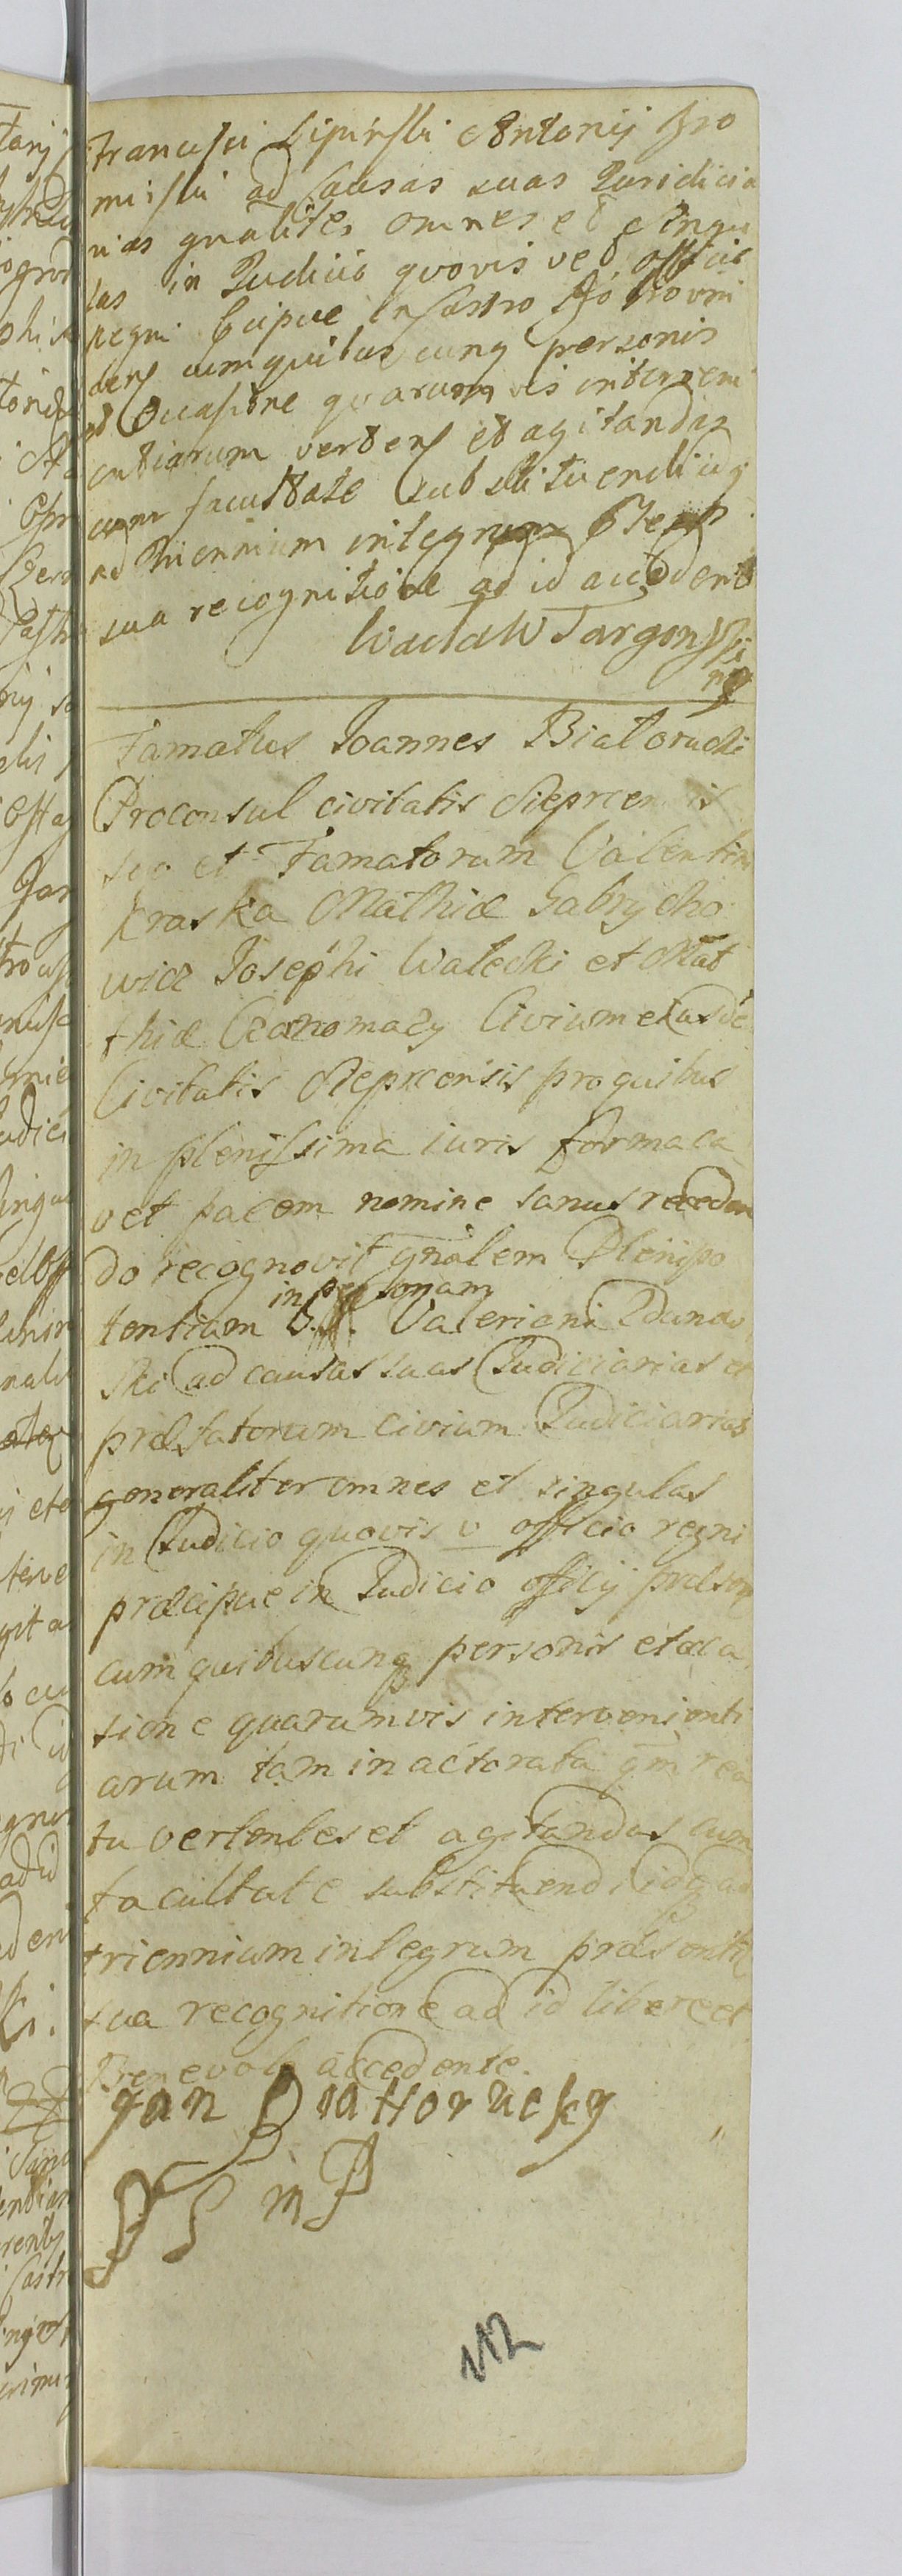 Francisci Lipinski Antonij Zro
miski ad Causas suas Juridicia
rias gnaliter omnes et Singu
las in Judicio quovis vel officio
Regni Ccipue in Castro
den cum quibuscunq personis
et Occasione quarumvis interveni
entiarum verten et agitandas
cum facultate substituendi iisq
ad Triennium integrum Pten
sua recognitione ad id accedent
Waclaw Targonski
mp
Famatus Joannes Białorucki
Proconsul civitatis Sieprcensis
suo et Famatorum Valentini
Kraska Mathiæ Gabrycho
wicz Josephi Walecki et Mat
thiæ Civium eiusde
Civitatis Sieprcensis pro quibus
in plenissima iuris forma ca
vet pacem nomine sanus receden
do recognovit gnalem Plenipo
in personam
tentiam G.N. Valeriani Zdundo
ski ad causas suas Judiciarias et
præfatorum civium Judiciarias
generaliter omnes et singulas
in Judicio quovis v officio regni
præcipue in Judicio officij præsen
cum quibuscunq personis et oca
sione quarumvis intervenienti
arum tam in actoratu qm rea
tu vertentes et agitandas cum
facultate substituendi iisq ad
triennium integrum præsenti
sua recognitione ad id libere et
Benevole accedente.
Jan Białłorucky
PS mp